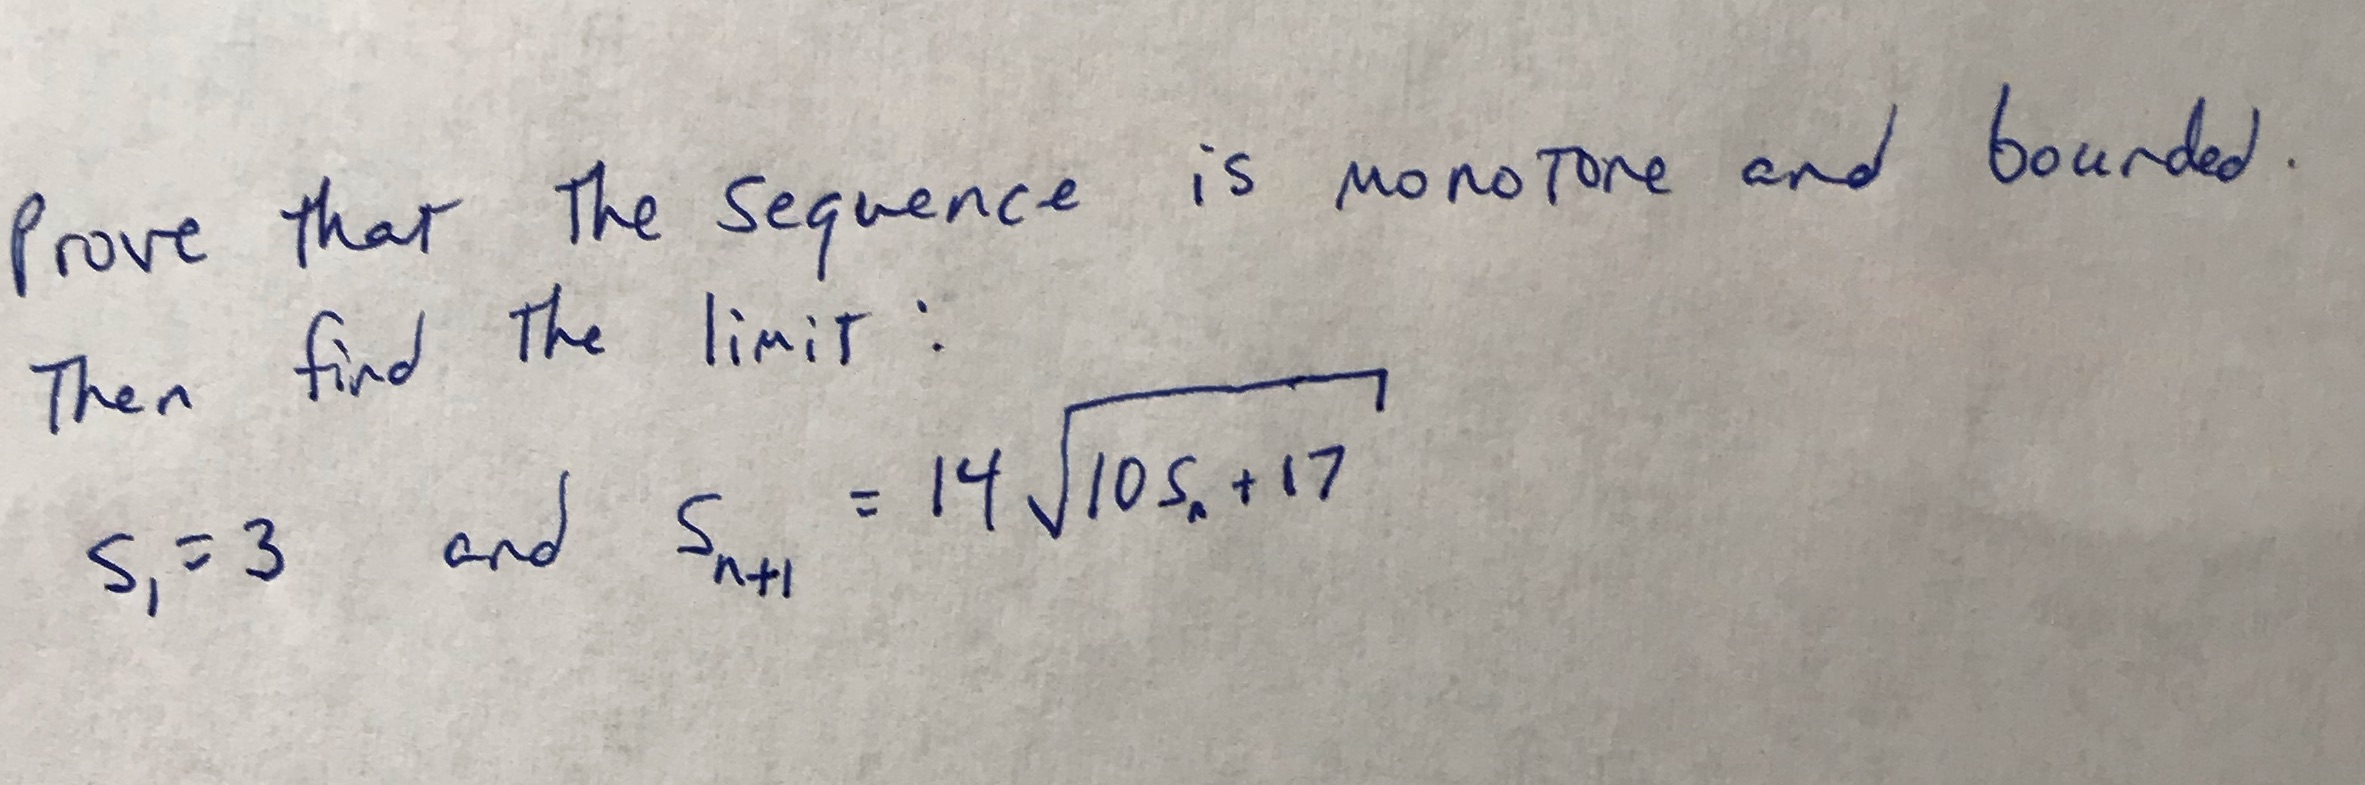 Prove that the sequence is monotone and bounded.
Then find the limit:
S₁ = 3 and Sₙ₊₁ = 14√(10Sₙ + 17)